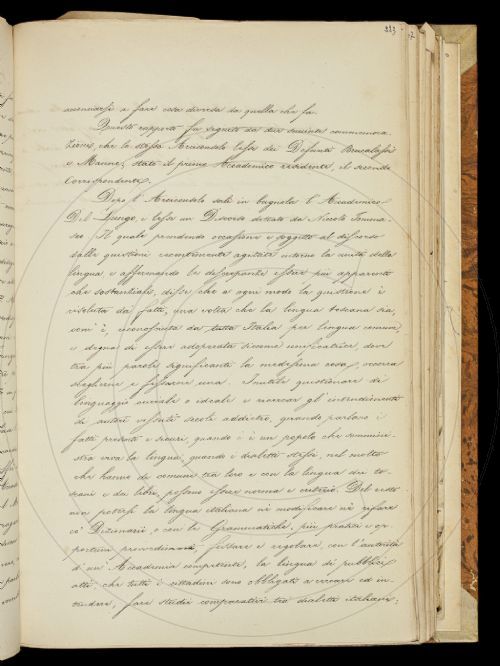 223
7
e fare cosa diversa da quella che fa.
Questo rapporto fu seguito da due commemora-
zioni, che lo stesso Arciconsolo lesse dei Defunti Brucalassi
e Mannes, stato il primo Accademico residente, il secondo
Corrispondente.
Dopo l'Arciconsolo salì in bugnola l'Accademico
Del-Lungo, e lesse un Discorso dettato da Niccolò Tomma-
seo. Il quale prendendo occasione e soggetto al discorso
dalle questioni recentemente agitate intorno la unità della
lingua, e affermando le discrepanze essere più apparenti
che sostanziali, disse che a ogni modo la questione è
risoluta da fatti, una volta che la lingua toscana sia,
com'è, riconosciuta da tutta Italia per lingua comune
e degna di essere adoperata siccome unificatrice, dove
tra più parole significanti la medesima cosa, occorra
sceglierne e fissarne una. Inutile questionare di
linguaggio aulico o ideale e ricercar gl'intendimenti
di autori vissuti secoli addietro, quando parlano i
fatti presenti e sicuri, quando c'è un popolo che sommini-
stra viva la lingua, quando i dialetti stessi, nel molto
che hanno di comune tra loro e con la lingua dei to-
scani e dei libri, possono essere norma e criterio. Del resto
non potersi la lingua italiana nè modificare nè rifare
co' Dizionarii o con le Grammatiche, più pratici e op-
portuni provvedimenti fissare e regolare, con l'autorità
d'un'Accademia competente, la lingua di pubblici
atti che tutti i cittadini sono obbligati a ed in-
tendere; fare studii comparativi tra dialetti italiani;